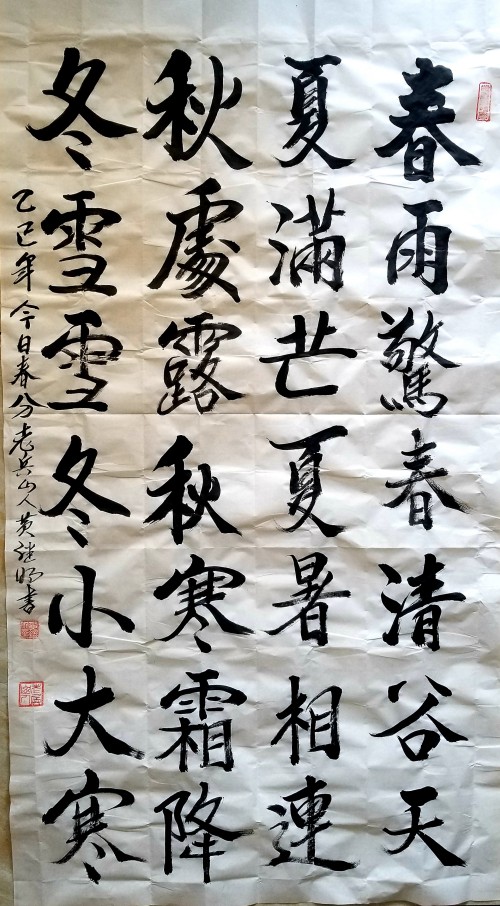 春雨驚春清谷天
夏滿芒夏暑相連
秋處露秋寒霜降
冬雪雪冬小大寒
乙巳年今日春分老兵山人黄继明書